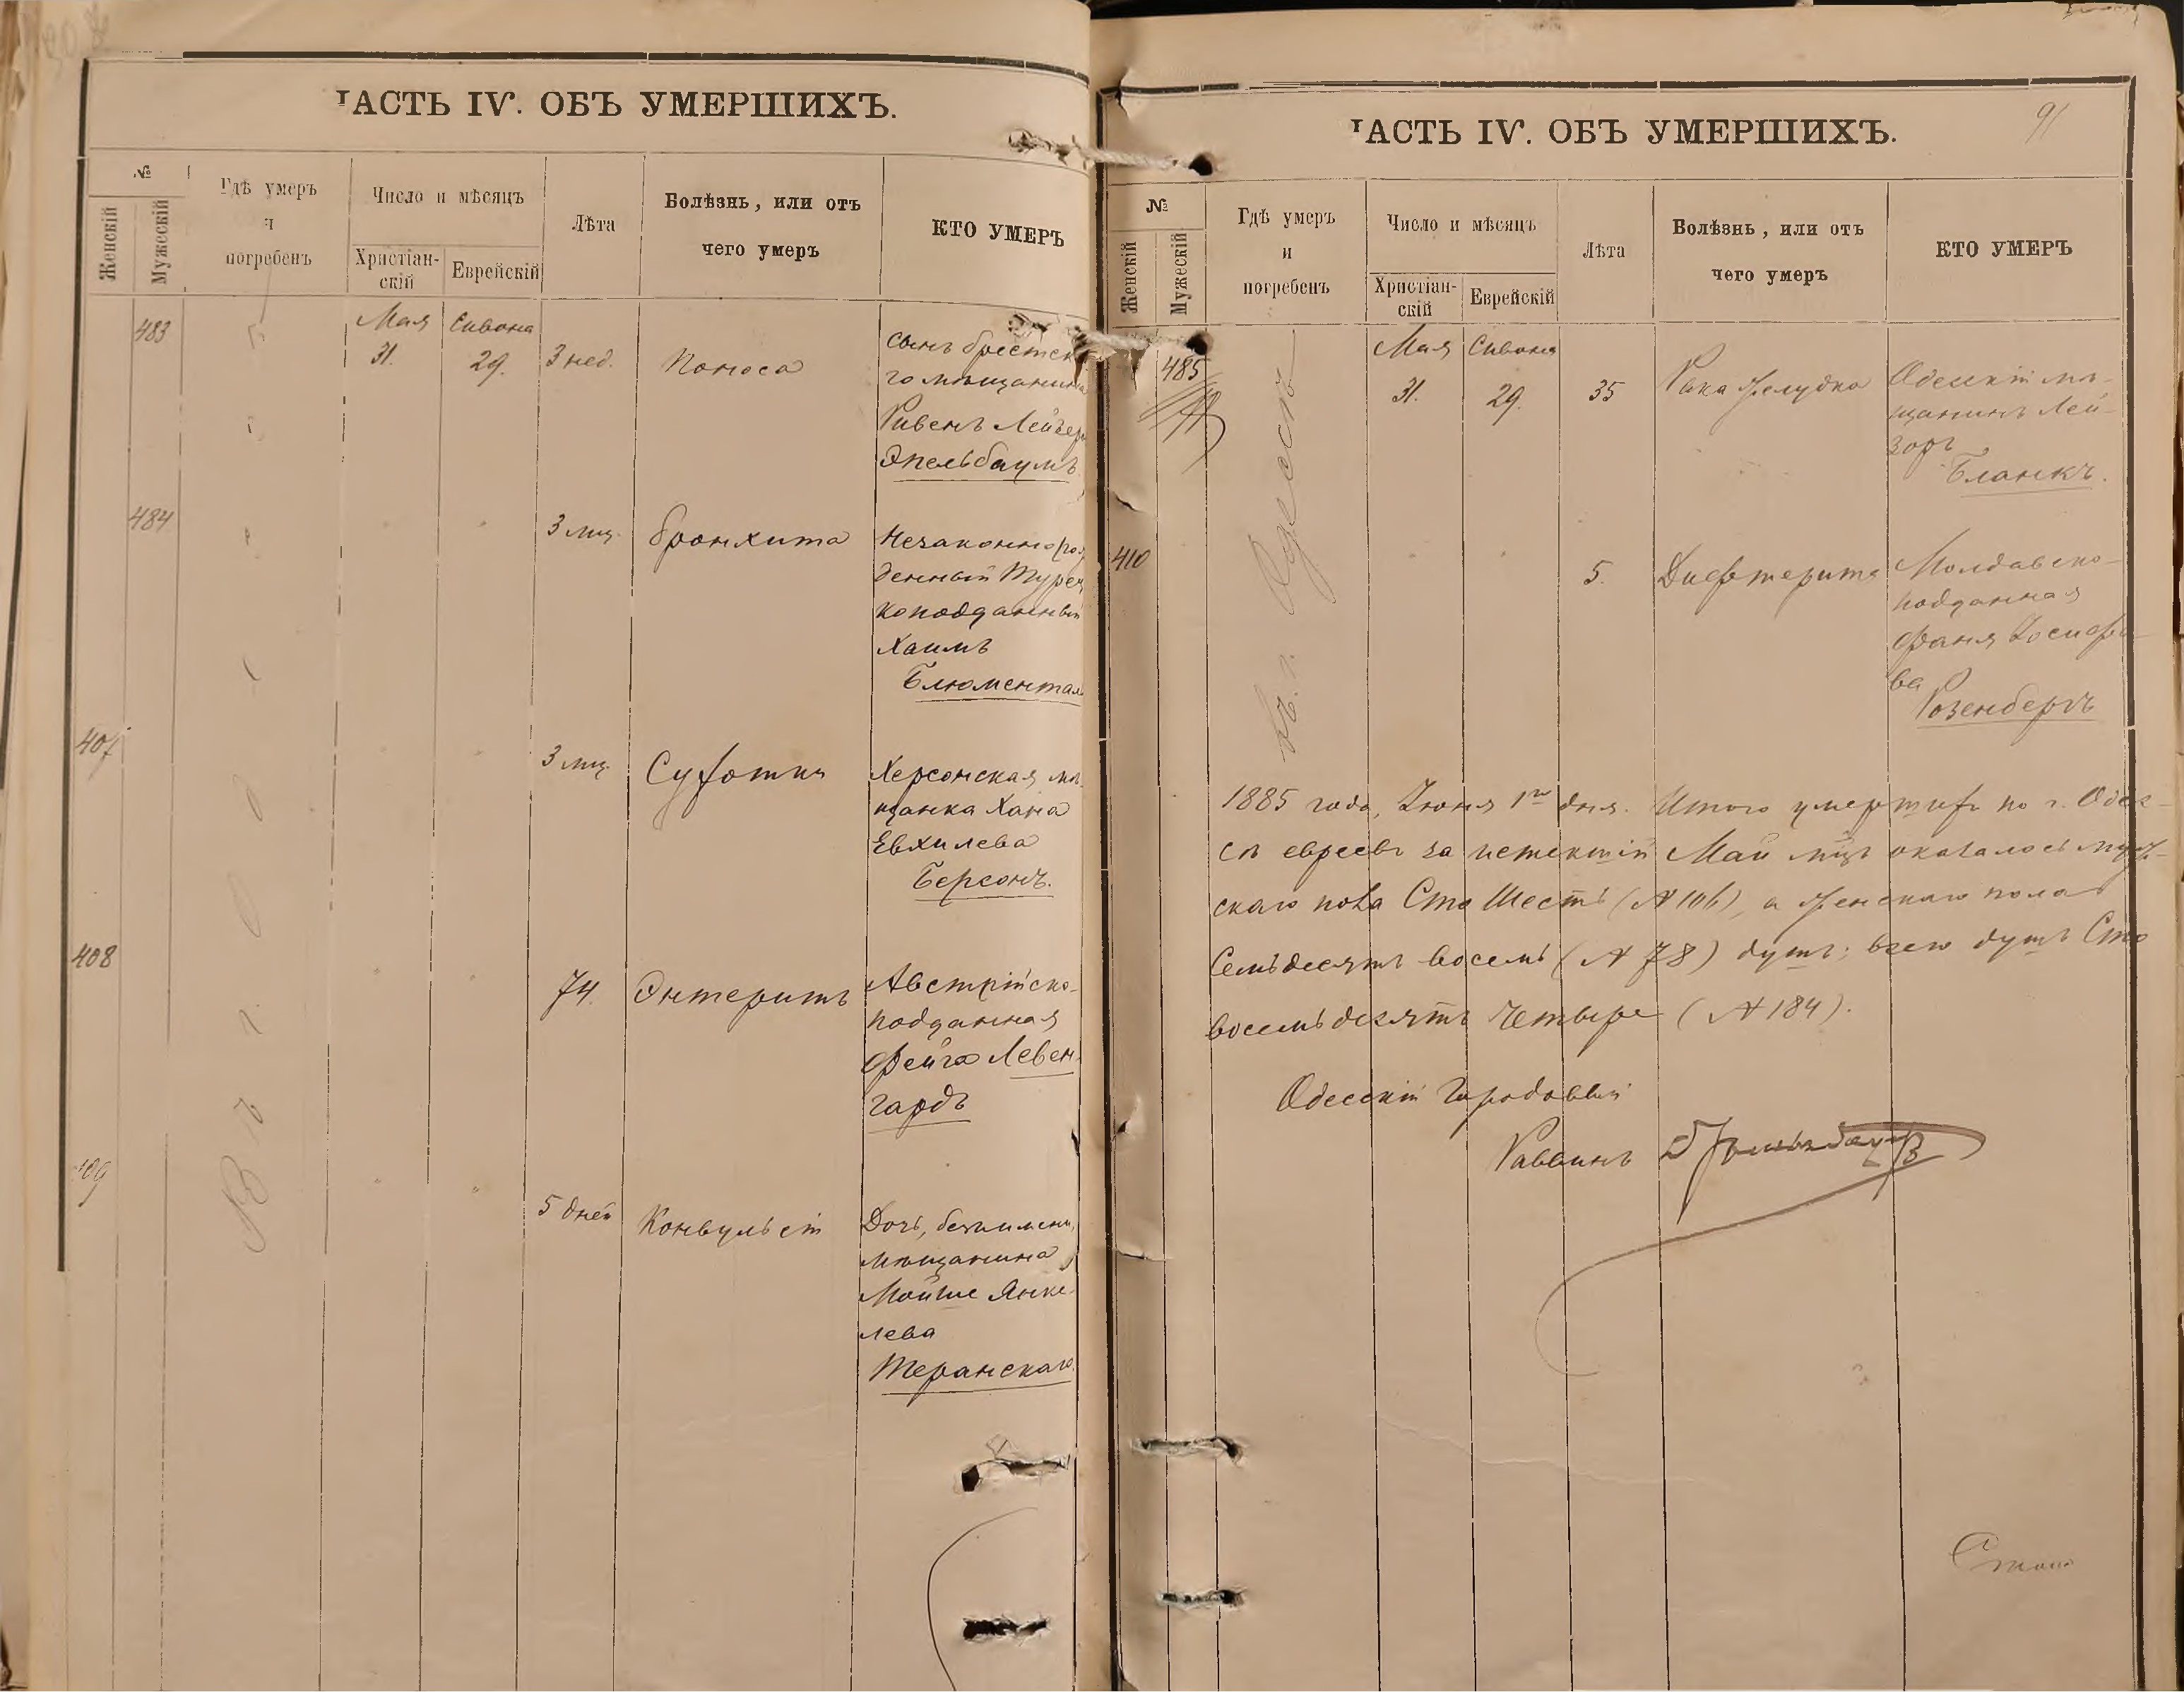 ЧАСТЬ IV. ОБЪ УМЕРШИХЪ.
№
Женскій
Мужескій
Гдѣ умеръ
и
погребенъ
Число и мѣсяцъ
Христіан-
скій
Еврейскій
Лѣта
Болѣзнь, или отъ
чего умеръ
КТО УМЕРЪ
483
Мая
31.
Сивона
29.
3 нед.
Поноса
Сынъ брестск
го мѣщанина
Ривенъ Лейзер
Эпельбаумъ
484
3 мц.
бронхита
Незаконнорож
денный Турец
коподданный
Хаимъ
Блюментал
407
3 мц.
Сухотки
Херсонская мѣ
щанка Хана
Евхилева
Берсонъ.
408
74.
Энтеритъ
Австрійско-
подданная
Фейга Левен-
гардъ
409
5 дней
Конвульсій
Дочь, безъ имени,
мѣщанина
Мойше Янке-
лева
Теранскаго
Въ г. Одессѣ
ЧАСТЬ IV. ОБЪ УМЕРШИХЪ.
91
№
Женскій
Мужескій
Гдѣ умеръ
и
погребенъ
Число и мѣсяцъ
Христіан-
скій
Еврейскій
Лѣта
Болѣзнь, или отъ
чего умеръ
КТО УМЕРЪ
485
Мая
31.
Сивона
29.
35
Рака желудка
Одесскій мѣ-
щанинъ Лей-
зоръ
Бланкъ.
410
5.
Дифтерита
Молдавско-
подданная
Фаня Іосифо-
ва
Розенбергъ
въ г. Одессѣ
1885 года, Іюня 1го дня. Итого умершихъ по г. Одес-
сѣ евреевъ за истекшій Май мцъ оказалось муж-
скаго пола Сто Шесть (№ 106), а женскаго пола
Семьдесятъ восемь (№ 78) душъ; всего душъ Сто
восемьдесятъ Четыре (№ 184).
Одесскій Городовый
Раввинъ